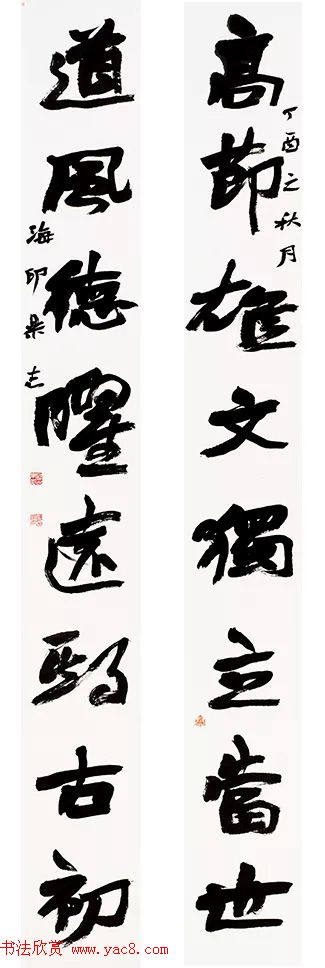 高節雄文獨立當世
丁酉之秋月
道風德曜遠古初
海印志
书法欣赏 www.yac8.com